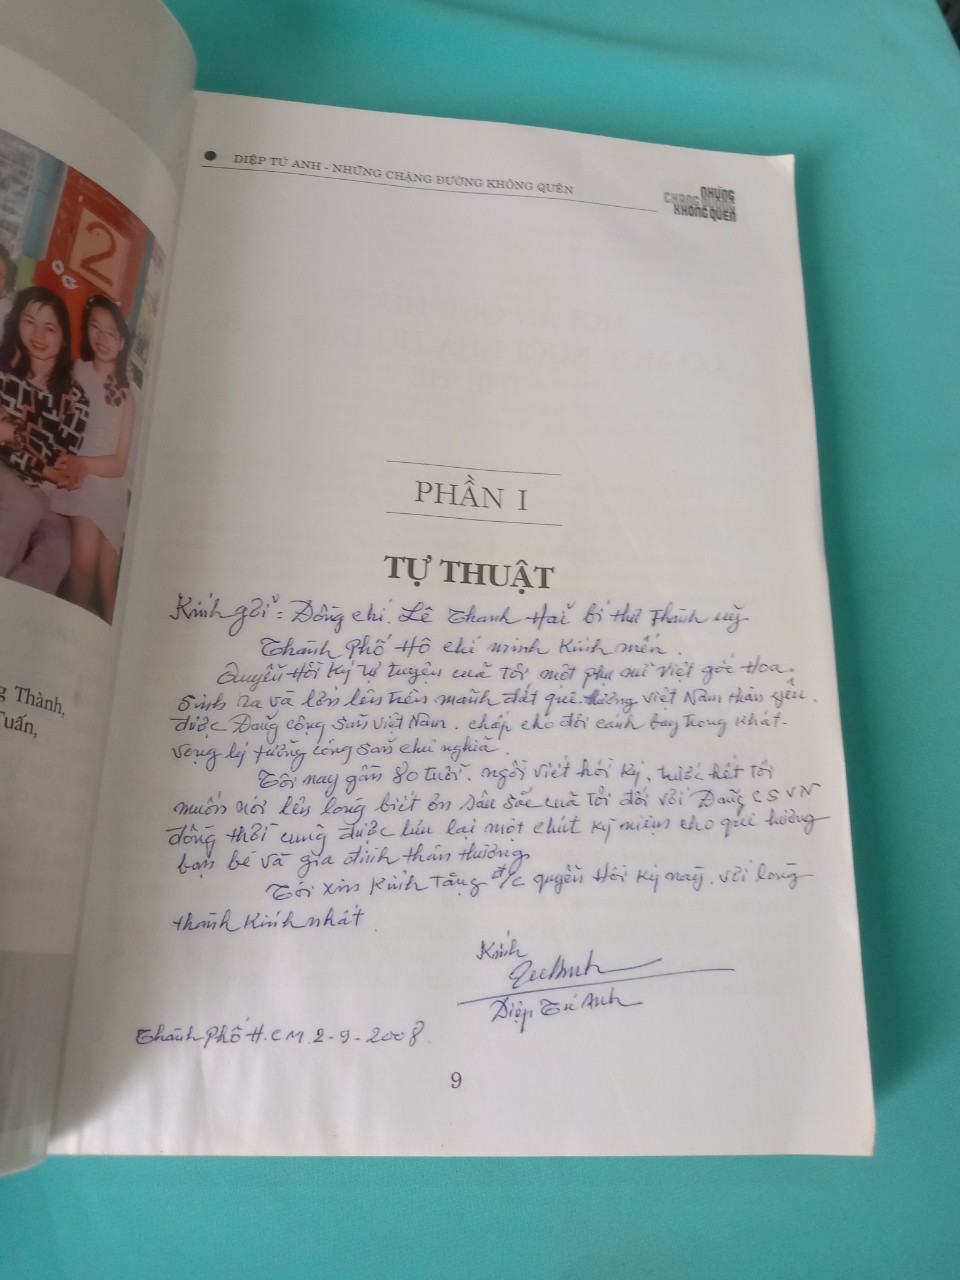 g Thành,
Tuấn,
DIỆP TÚ ANH - NHỮNG CHẶNG ĐƯỜNG KHÔNG QUÊN
NHỮNG
CHẶNG ĐƯỜNG
KHÔNG QUÊN
2
PHẦN I
TỰ THUẬT
Kính gởi : Đồng chí. Lê Thanh Hải bí thư Thành uỷ
Thành Phố Hồ chí minh Kính mến.
Quyển Hồi Ký tự truyện của tôi một phụ nữ Việt gốc Hoa.
Sinh ra và lớn lên trên mảnh đất quê hương Việt Nam thân yêu.
được Đảng cộng sản Việt Nam. chấp cho đôi cánh bay trong khát-
vọng lý tưởng cộng sản chủ nghĩa.
Tôi nay gần 80 tuổi. ngồi viết hồi ký, trước hết tôi
muốn nói lên lòng biết ơn sâu sắc của tôi đối với Đảng CSVN
đồng thời cũng được lưu lại một chút kỷ niệm cho quê hương
bạn bè và gia đình thân thương.
Tôi xin Kính Tặng đ/c quyển Hồi Ký này. với lòng
thành Kính nhất.
Kính
Diệp Tú Anh
Thành Phố H.CM. 2-9-2008.
9